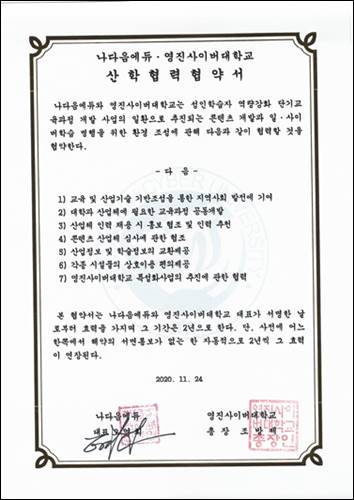 나다음에듀 · 영진사이버대학교
산 학 협 력 협 약 서
나다음에듀와 영진사이버대학교는 성인학습자 역량강화 단기교
육과정 개발 사업의 일환으로 추진되는 콘텐츠 개발과 일 · 사이
버학습 병행을 위한 환경 조성에 관해 다음과 같이 협력할 것을
협약한다.
- 다 음 -
1) 교육 및 산업기술 기반조성을 통한 지역사회 발전에 기여
2) 대학과 산업체에 필요한 교육과정 공동개발
3) 산업체 인력 채용 시 홍보 협조 및 인력 추천
4) 콘텐츠 산업체 심사에 관한 협조
5) 산업정보 및 학술정보의 교환제공
6) 각종 시설물의 상호이용 편의제공
7) 영진사이버대학교 특성화사업의 추진에 관한 협력
본 협약서는 나다음에듀와 영진사이버대학교 대표가 서명한 날
로부터 효력을 가지며 그 기간은 2년으로 한다. 단, 사전에 어느
한쪽에서 해약의 서면통보가 없는 한 자동적으로 2년씩 그 효력
이 연장된다.
2020. 11. 24
나다음에듀 영진사이버대학교
대표 총 장 조 방 제
영진사이
버대학교
총장인